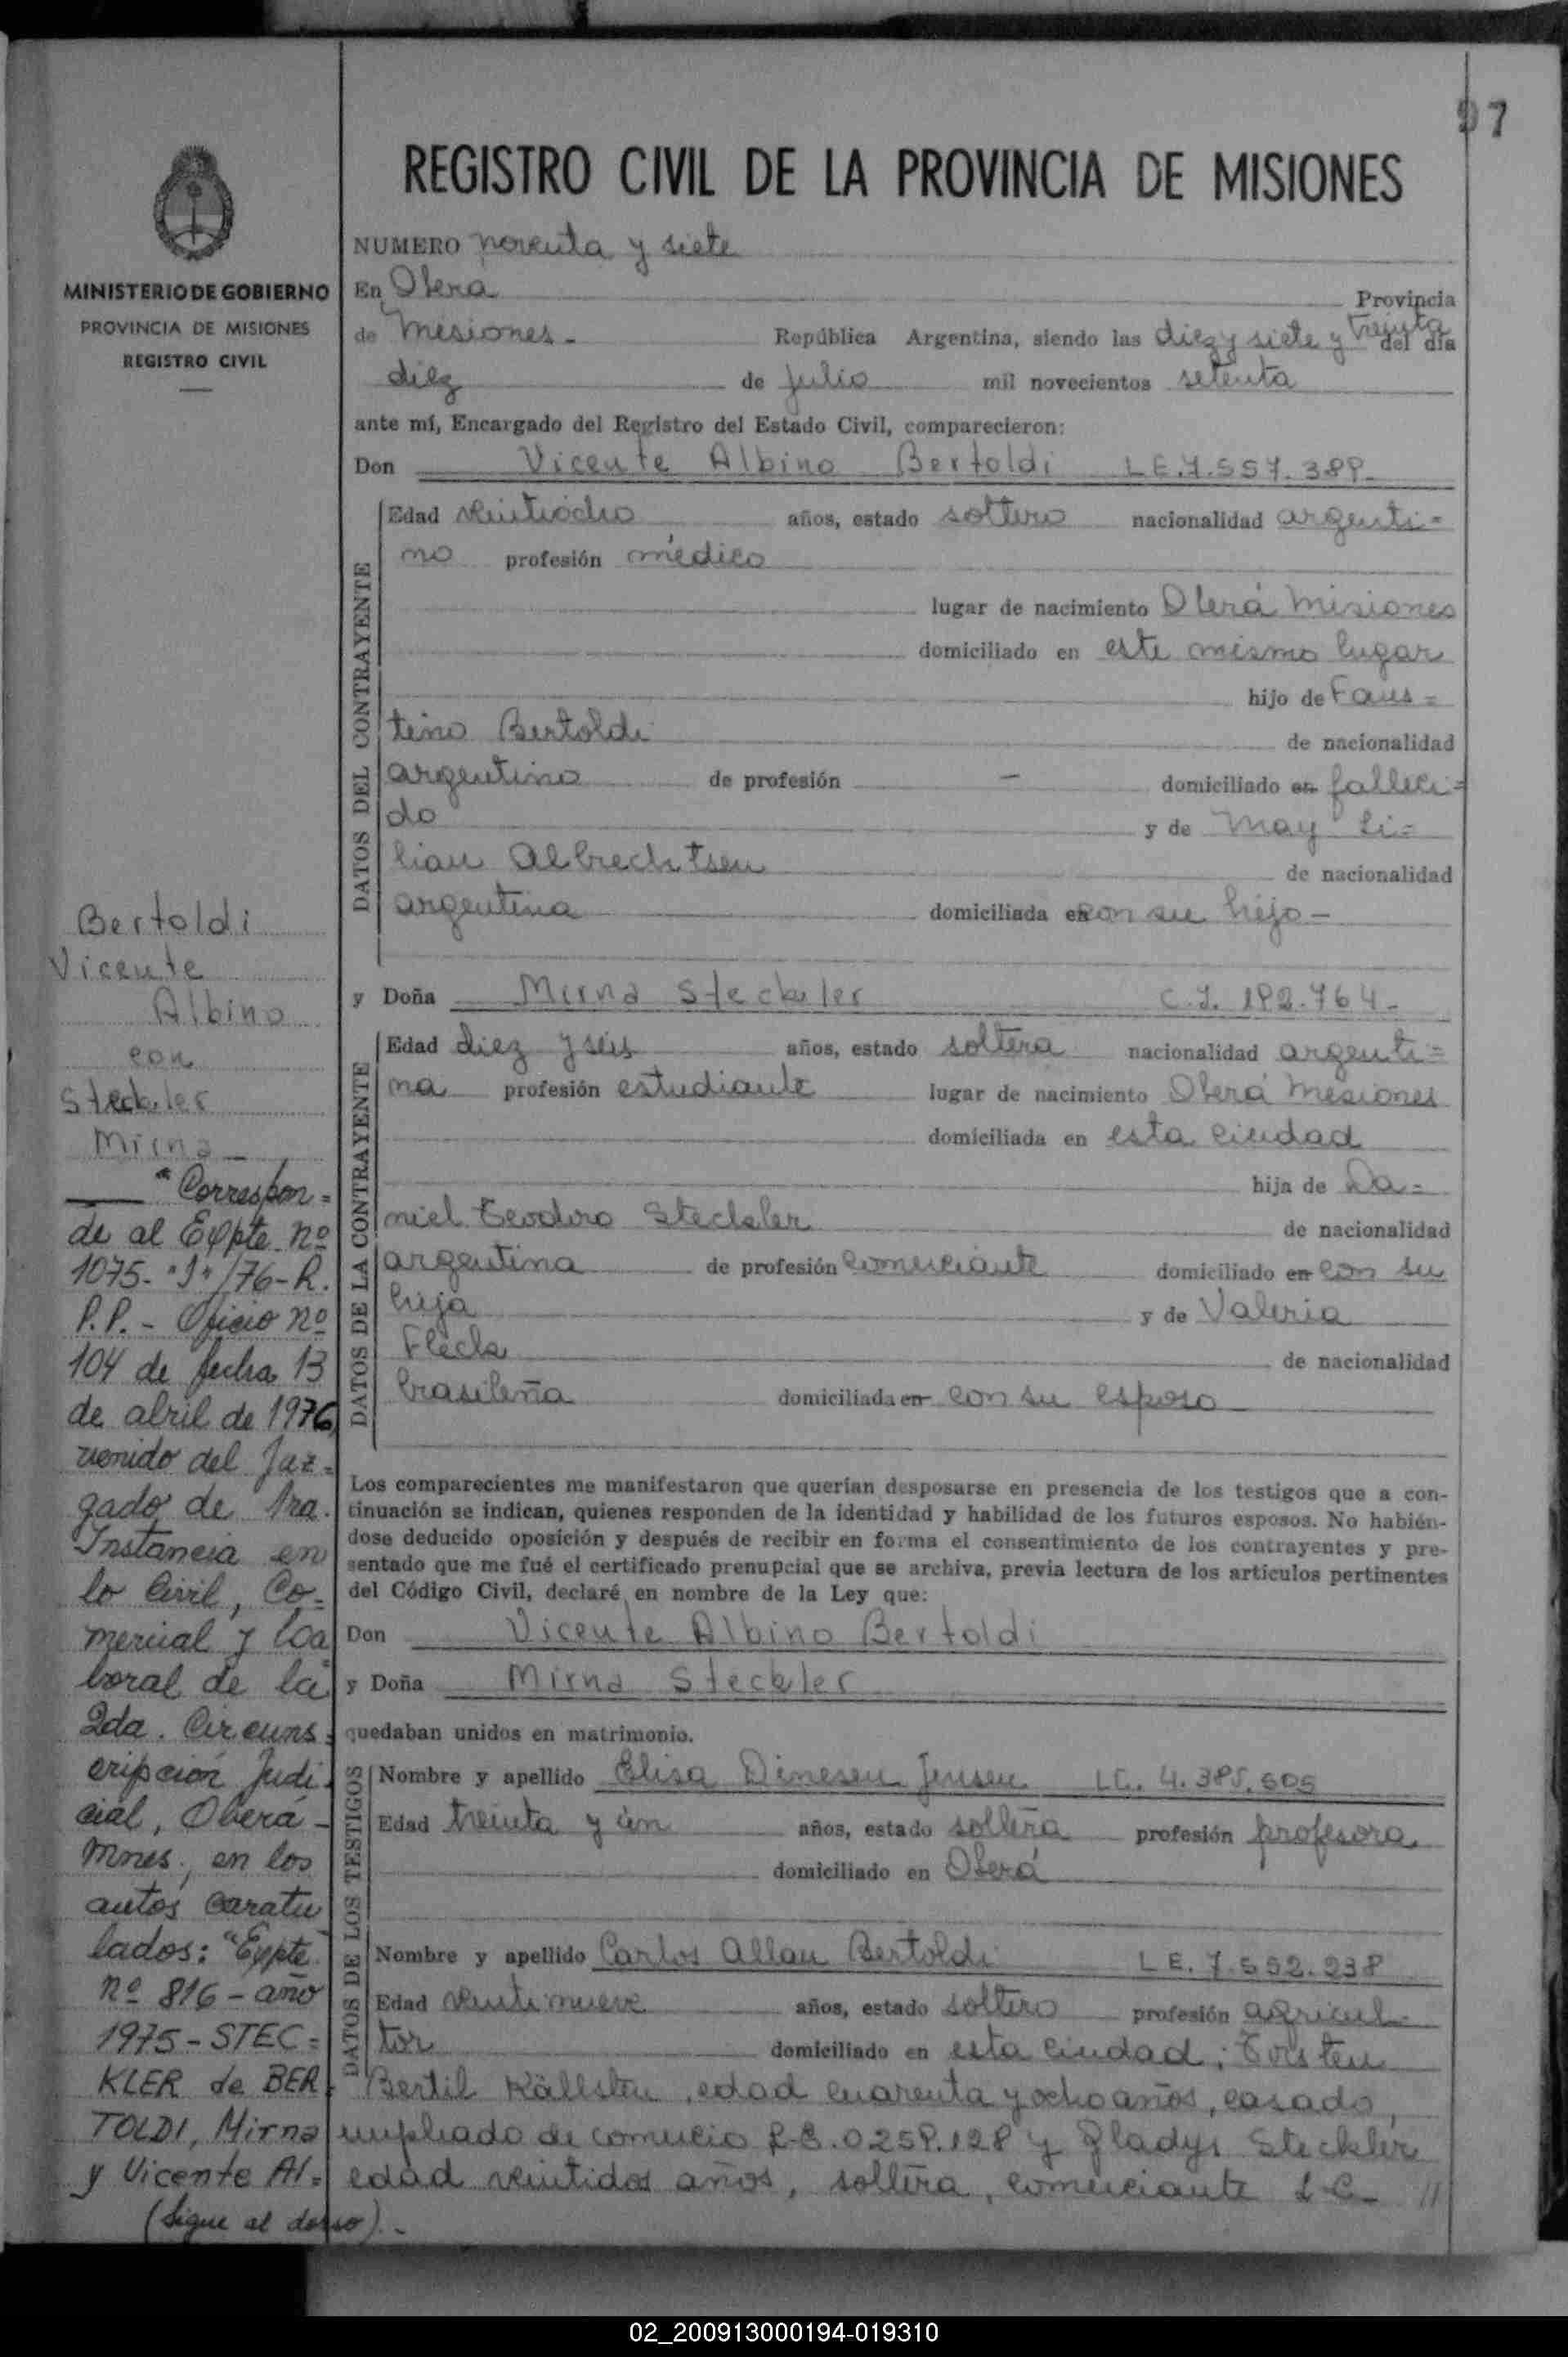 97
REGISTRO CIVIL DE LA PROVINCIA DE MISIONES
MINISTERIO DE GOBIERNO
PROVINCIA DE MISIONES
REGISTRO CIVIL
NUMERO noventa y siete
En Obera Provincia
de Misiones.- República Argentina, siendo las diez y siete y treinta del día
diez de julio mil novecientos setenta
ante mí, Encargado del Registro del Estado Civil, comparecieron:
Don Vicente Albino Bertoldi L E. 7.557.389.-
DATOS DEL CONTRAYENTE
Edad veintiocho años, estado soltero nacionalidad argenti=
no profesión médico
lugar de nacimiento Oberá Misiones
domiciliado en este mismo lugar
hijo de Faus=
tino Bertoldi de nacionalidad
argentino de profesión — domiciliado en falleci=
do y de May Li=
lian Albrechtsen de nacionalidad
argentina domiciliada en con su hijo -
y Doña Mirna Steckler C.I. 192.764-
DATOS DE LA CONTRAYENTE
Edad diez y seis años, estado soltera nacionalidad argenti=
na profesión estudiante lugar de nacimiento Oberá Misiones
domiciliada en esta ciudad
hija de Da=
niel Teodoro Steckler de nacionalidad
argentina de profesión comerciante domiciliado en con su
hija y de Valeria
Fleck de nacionalidad
brasileña domiciliada en con su esposo
Los comparecientes me manifestaron que querían desposarse en presencia de los testigos que a con-
tinuación se indican, quienes responden de la identidad y habilidad de los futuros esposos. No habién-
dose deducido oposición y después de recibir en forma el consentimiento de los contrayentes y pre-
sentado que me fué el certificado prenupcial que se archiva, previa lectura de los artículos pertinentes
del Código Civil, declaré en nombre de la Ley que:
Don Vicente Albino Bertoldi
y Doña Mirna Steckler
quedaban unidos en matrimonio.
DATOS DE LOS TESTIGOS
Nombre y apellido Elisa Dinesen Jensen LC. 4.385.605
Edad treinta y un años, estado soltera profesión profesora
domiciliado en Oberá
Nombre y apellido Carlos Allan Bertoldi L E. 7.552.238
Edad veintinueve años, estado soltero profesión agricul-
tor domiciliado en esta ciudad; Torsten
Bertil Källsten, edad cuarenta y ocho años, casado,
empleado de comercio 0259.128 y Gladys Steckler
edad veintidos años, soltera, comerciante L-C- //
Bertoldi
Vicente
Albino
con
Steckler
Mirna
"Correspon=
de al Expte. nº
1075-"J"/76-R.
P.P.- Oficio nº
104 de fecha 13
de abril de 1976,
venido del Juz=
gado de 1ra.
Instancia en
lo Civil, Co=
mercial y Loa
boral de la
2da. Circuns=
cripción Judi=
cial, Oberá-
Mnes., en los
autos caratu
lados: "Expte.
nº 816-año
1975-STEC=
KLER de BER=
TOLDI, Mirna
y Vicente Al=
(Sigue al dorso).-
02_200913000194-019310